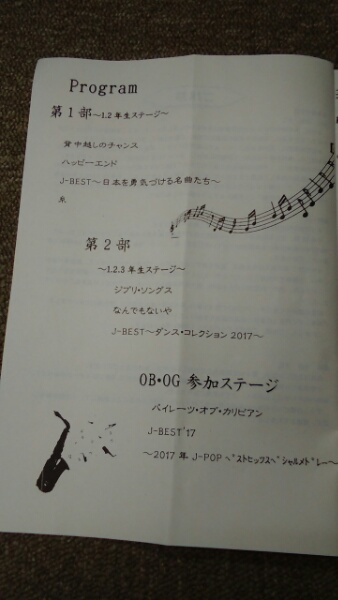 Program
第1部〜1.2年生ステージ〜
背中越しのチャンス
ハッピーエンド
J-BEST〜日本を勇気づける名曲たち〜
糸
第2部
〜1.2.3年生ステージ〜
ジブリ・ソングス
なんでもないや
J-BEST〜ダンス・コレクション2017〜
OB・OG 参加ステージ
パイレーツ・オブ・カリビアン
J-BEST'17
〜2017年 J-POP ベストヒッツスペシャルメドレー〜